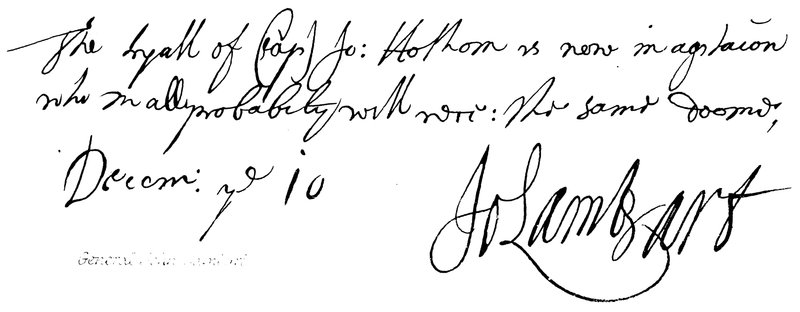 The tryall of Cap) Jo: Hothom is now in agitacōn
who in all probability will rece: the same doome,
Decem: ye 10
Jo Lambart
General John Lambert